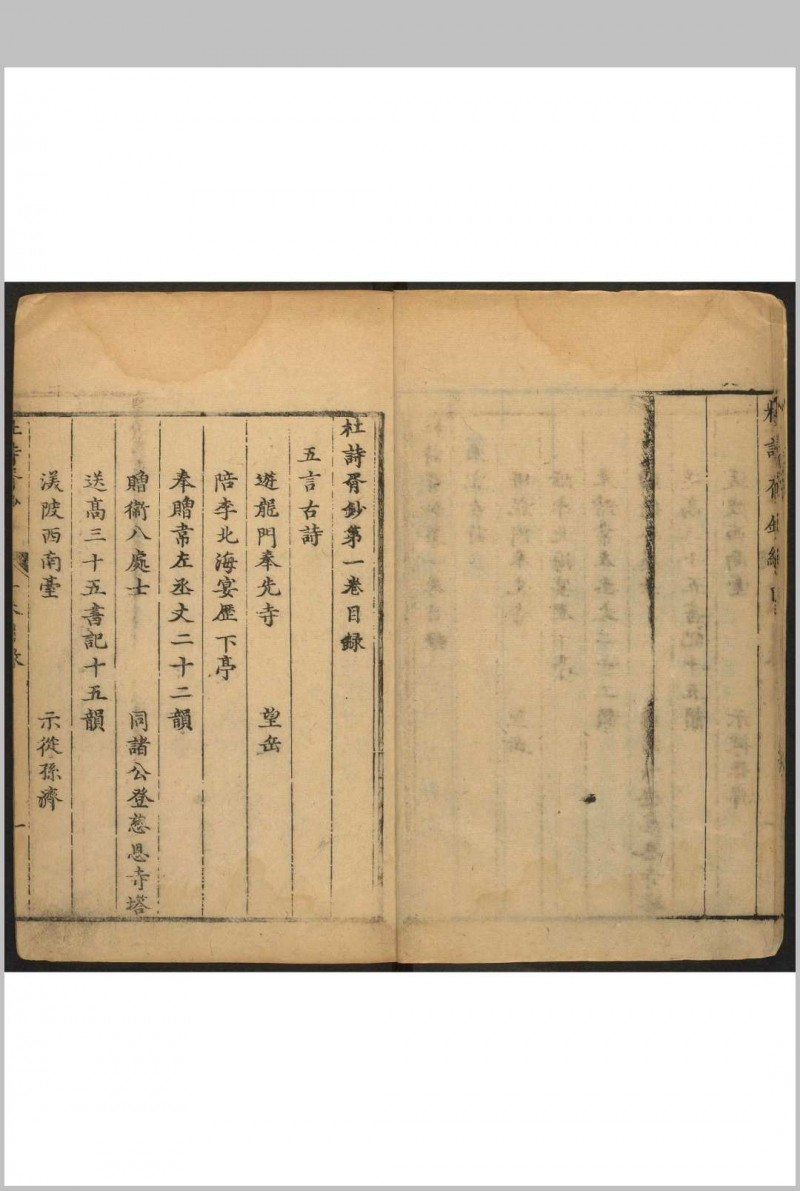 杜詩胥鈔第一卷目録
五言古詩
遊龍門奉先寺　望岳
陪李北海宴歷下亭
奉贈韋左丞丈二十二韻
贈衛八處士　同諸公登慈恩寺塔
送高三十五書記十五韻
渼陂西南臺　示從孫濟
一